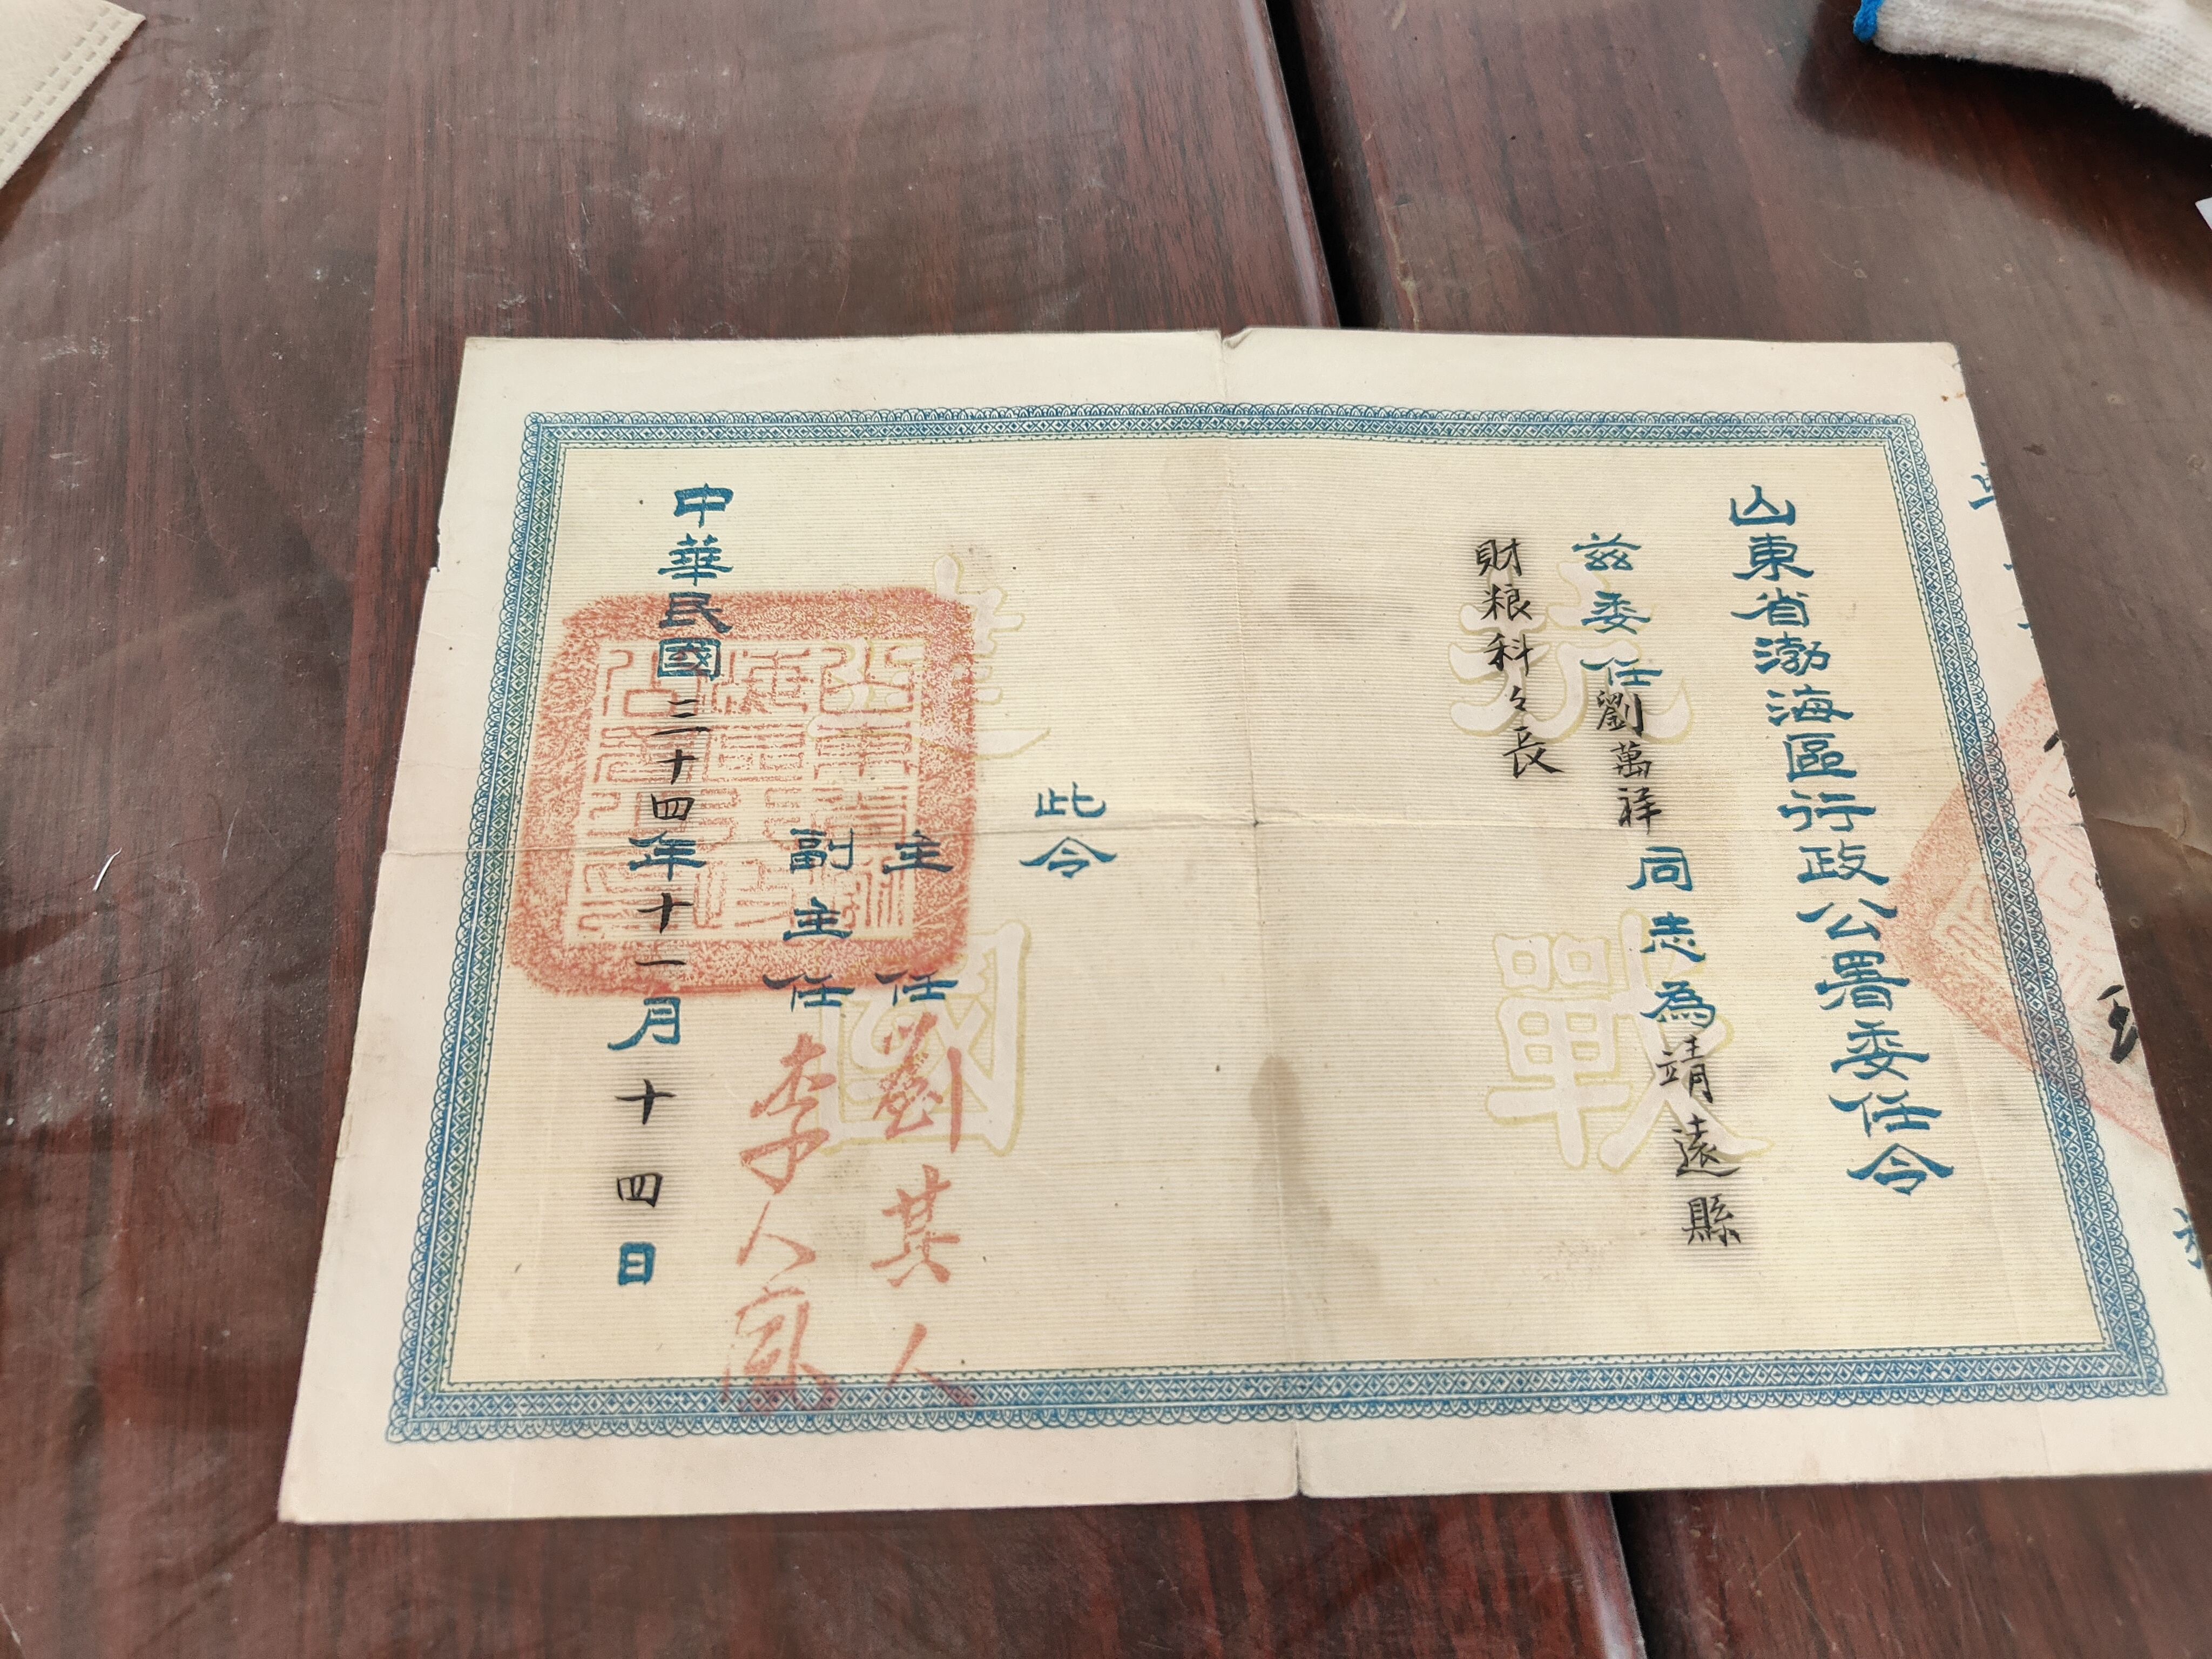 山東省渤海區行政公署委任令
茲委任劉萬祥同志為靖遠縣
財粮科々長
此令
主任劉其人
副主任李人鳳
中華民國三十四年十一月十四日
抗戰
建國